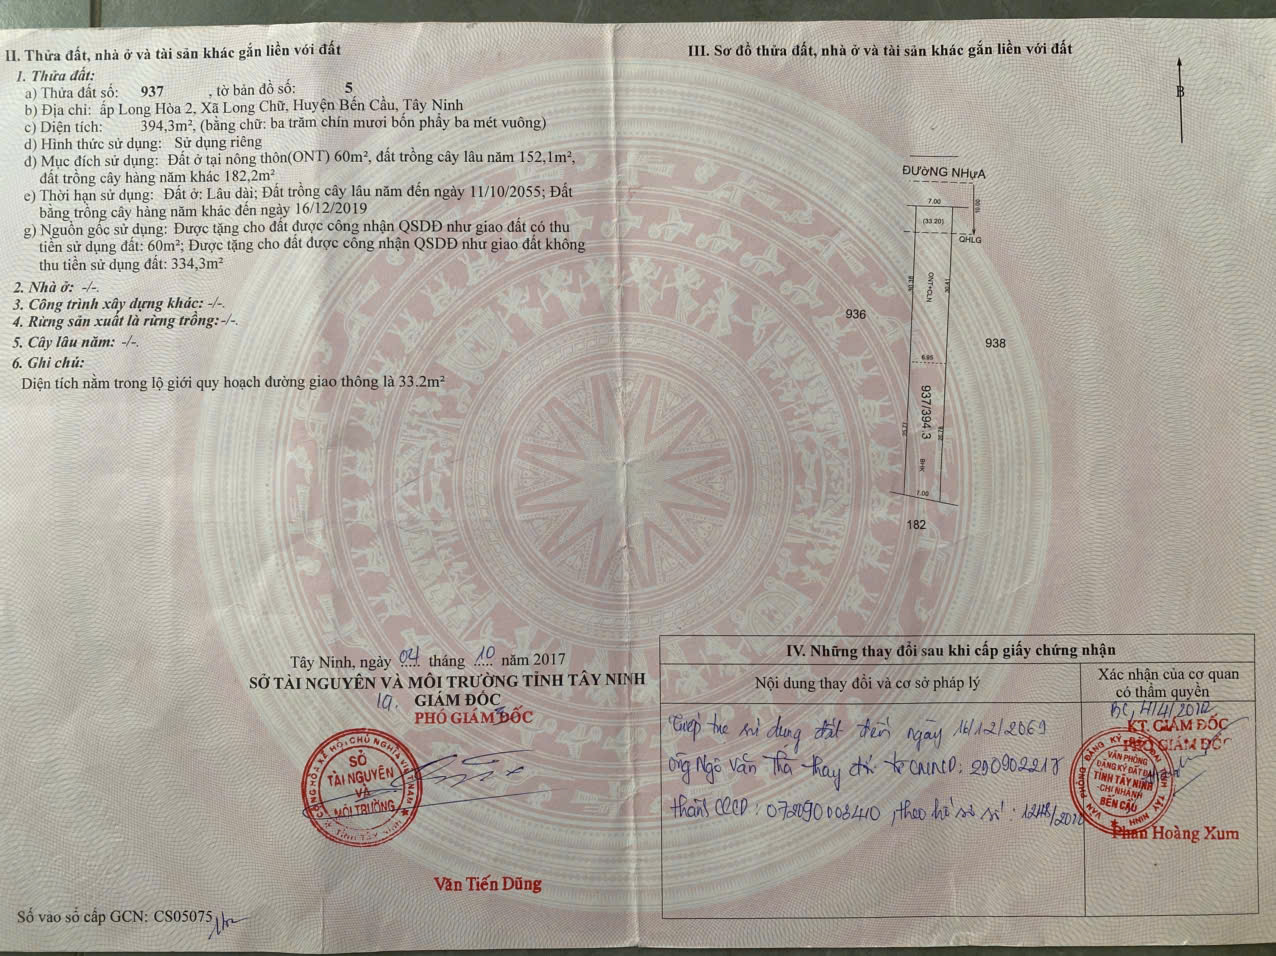 II. Thửa đất, nhà ở và tài sản khác gắn liền với đất
1. Thửa đất:
a) Thửa đất số: 937 , tờ bản đồ số: 5
b) Địa chỉ: ấp Long Hòa 2, Xã Long Chữ, Huyện Bến Cầu, Tây Ninh
c) Diện tích: 394,3m², (bằng chữ: ba trăm chín mươi bốn phẩy ba mét vuông)
d) Hình thức sử dụng: Sử dụng riêng
đ) Mục đích sử dụng: Đất ở tại nông thôn(ONT) 60m², đất trồng cây lâu năm 152,1m²,
đất trồng cây hàng năm khác 182,2m²
e) Thời hạn sử dụng: Đất ở: Lâu dài; Đất trồng cây lâu năm đến ngày 11/10/2055; Đất
bằng trồng cây hàng năm khác đến ngày 16/12/2019
g) Nguồn gốc sử dụng: Được tặng cho đất được công nhận QSDĐ như giao đất có thu
tiền sử dụng đất: 60m²; Được tặng cho đất được công nhận QSDĐ như giao đất không
thu tiền sử dụng đất: 334,3m²
2. Nhà ở: -/-.
3. Công trình xây dựng khác: -/-.
4. Rừng sản xuất là rừng trồng:-/-.
5. Cây lâu năm: -/-.
6. Ghi chú:
Diện tích nằm trong lộ giới quy hoạch đường giao thông là 33.2m²
Tây Ninh, ngày 04 tháng 10 năm 2017
SỞ TÀI NGUYÊN VÀ MÔI TRƯỜNG TỈNH TÂY NINH
GIÁM ĐỐC
PHÓ GIÁM ĐỐC
CỘNG HÒA XÃ HỘI CHỦ NGHĨA VIỆT NAM
SỞ
TÀI NGUYÊN
VÀ
MÔI TRƯỜNG
TỈNH TÂY NINH
Văn Tiến Dũng
Số vào sổ cấp GCN: CS05075
III. Sơ đồ thửa đất, nhà ở và tài sản khác gắn liền với đất
B
ĐƯỜNG NHỰA
7.00
10.00
(33.20)
QHLG
ONT+CLN
30.41
936
938
6.95
937/394.3
BHK
7.00
182
IV. Những thay đổi sau khi cấp giấy chứng nhận
Nội dung thay đổi và cơ sở pháp lý
Xác nhận của cơ quan
có thẩm quyền
sử dụng đất đến ngày 16/12/2069
Ông Ngô Văn Thà thay đổi từ CMND: 290902217
thành CCCD: , theo hồ sơ số:
KT. GIÁM ĐỐC
PHÓ GIÁM ĐỐC
VĂN PHÒNG
ĐĂNG KÝ ĐẤT ĐAI
TỈNH TÂY NINH
-CHI NHÁNH
BẾN CẦU
Phan Hoàng Xum